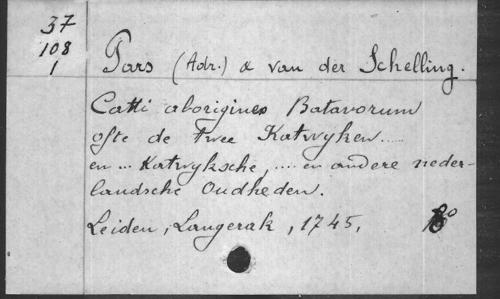 37
108
1
Pars (Adr.) & van der Schelling.
Catti aborigines Batavorum
ofte de twee Katwyken.....
en ... Katwyksche, .... en andere neder-
landsche Oudheden.
Leiden, Langerak, 1745,